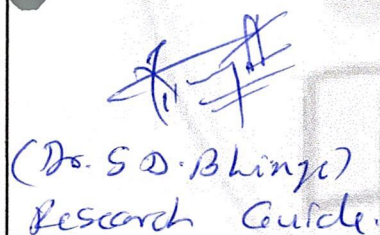 (Dr. S D. Bhinge)
Research Guide.